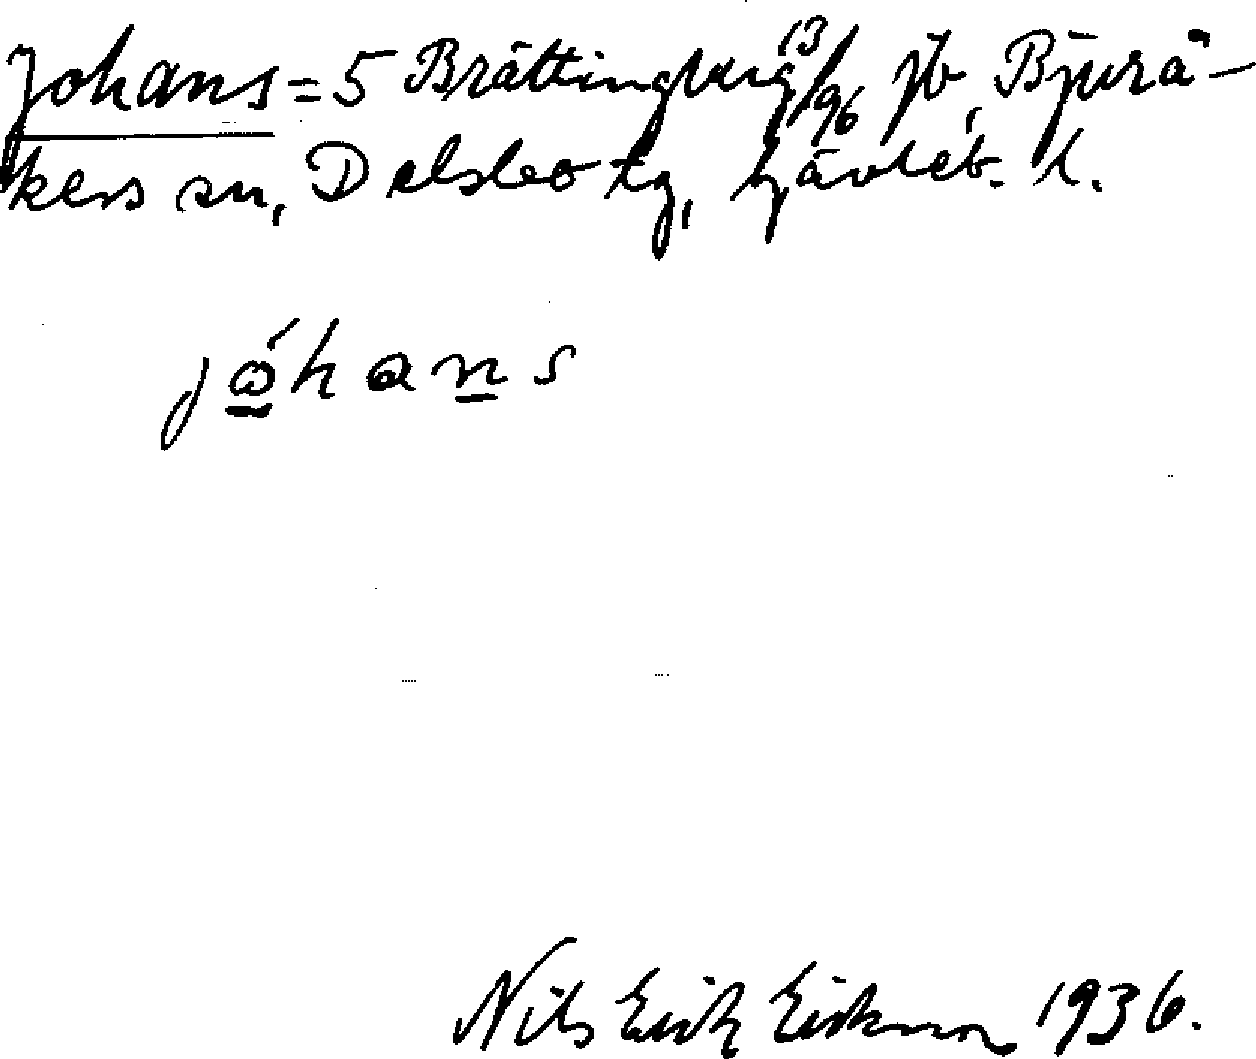 Johans = 5 Brättingberg 13/96 jb, Bjurå-
kers sn, Delsbo tg, Gävleb. l.
jóhans
Nils Erik Erikson 1936.